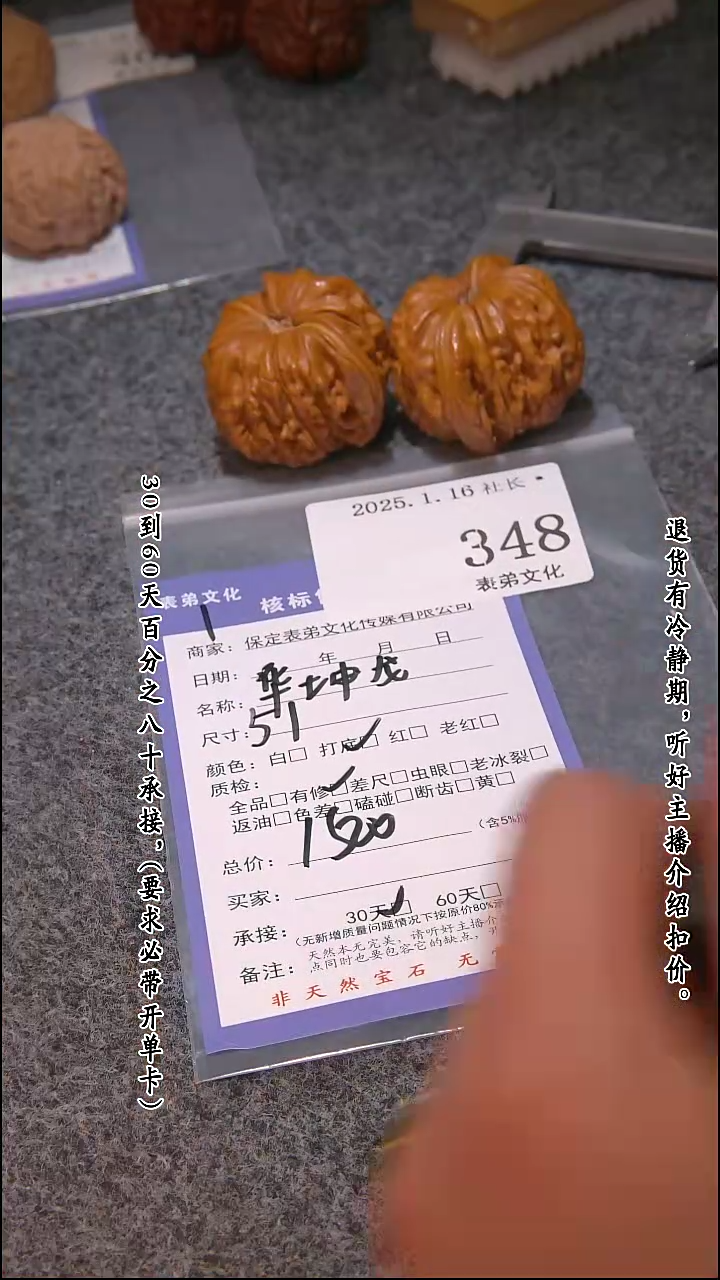 30到60天百分之八十承接,(要求必带开单卡)
退货有冷静期,听好主播介绍扣价。
2025.1.16 社长
348
表弟文化
表弟文化 核标
商家:保定表弟文化传媒有限公司
日期: 年 月 日
名称:
尺寸:51
颜色:白□ 打底☑ 红□ 老红□
质检:
全品□有修☑差尺□虫眼□老冰裂□
返油□色差□磕碰□断齿□黄□
总价:1500 (含5%
买家:
承接:30天☑ 60天□
(无新增质量问题情况下按原价80%
备注:天然本无完美,请听好主播介
点同时也要包容它的缺点,
非天然宝石 无